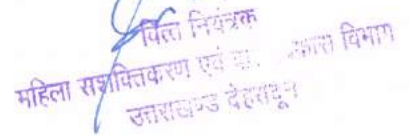 वित्त नियंत्रक
महिला सशक्तिकरण एवं बा... विकास विभाग
उत्तराखण्ड देहरादून